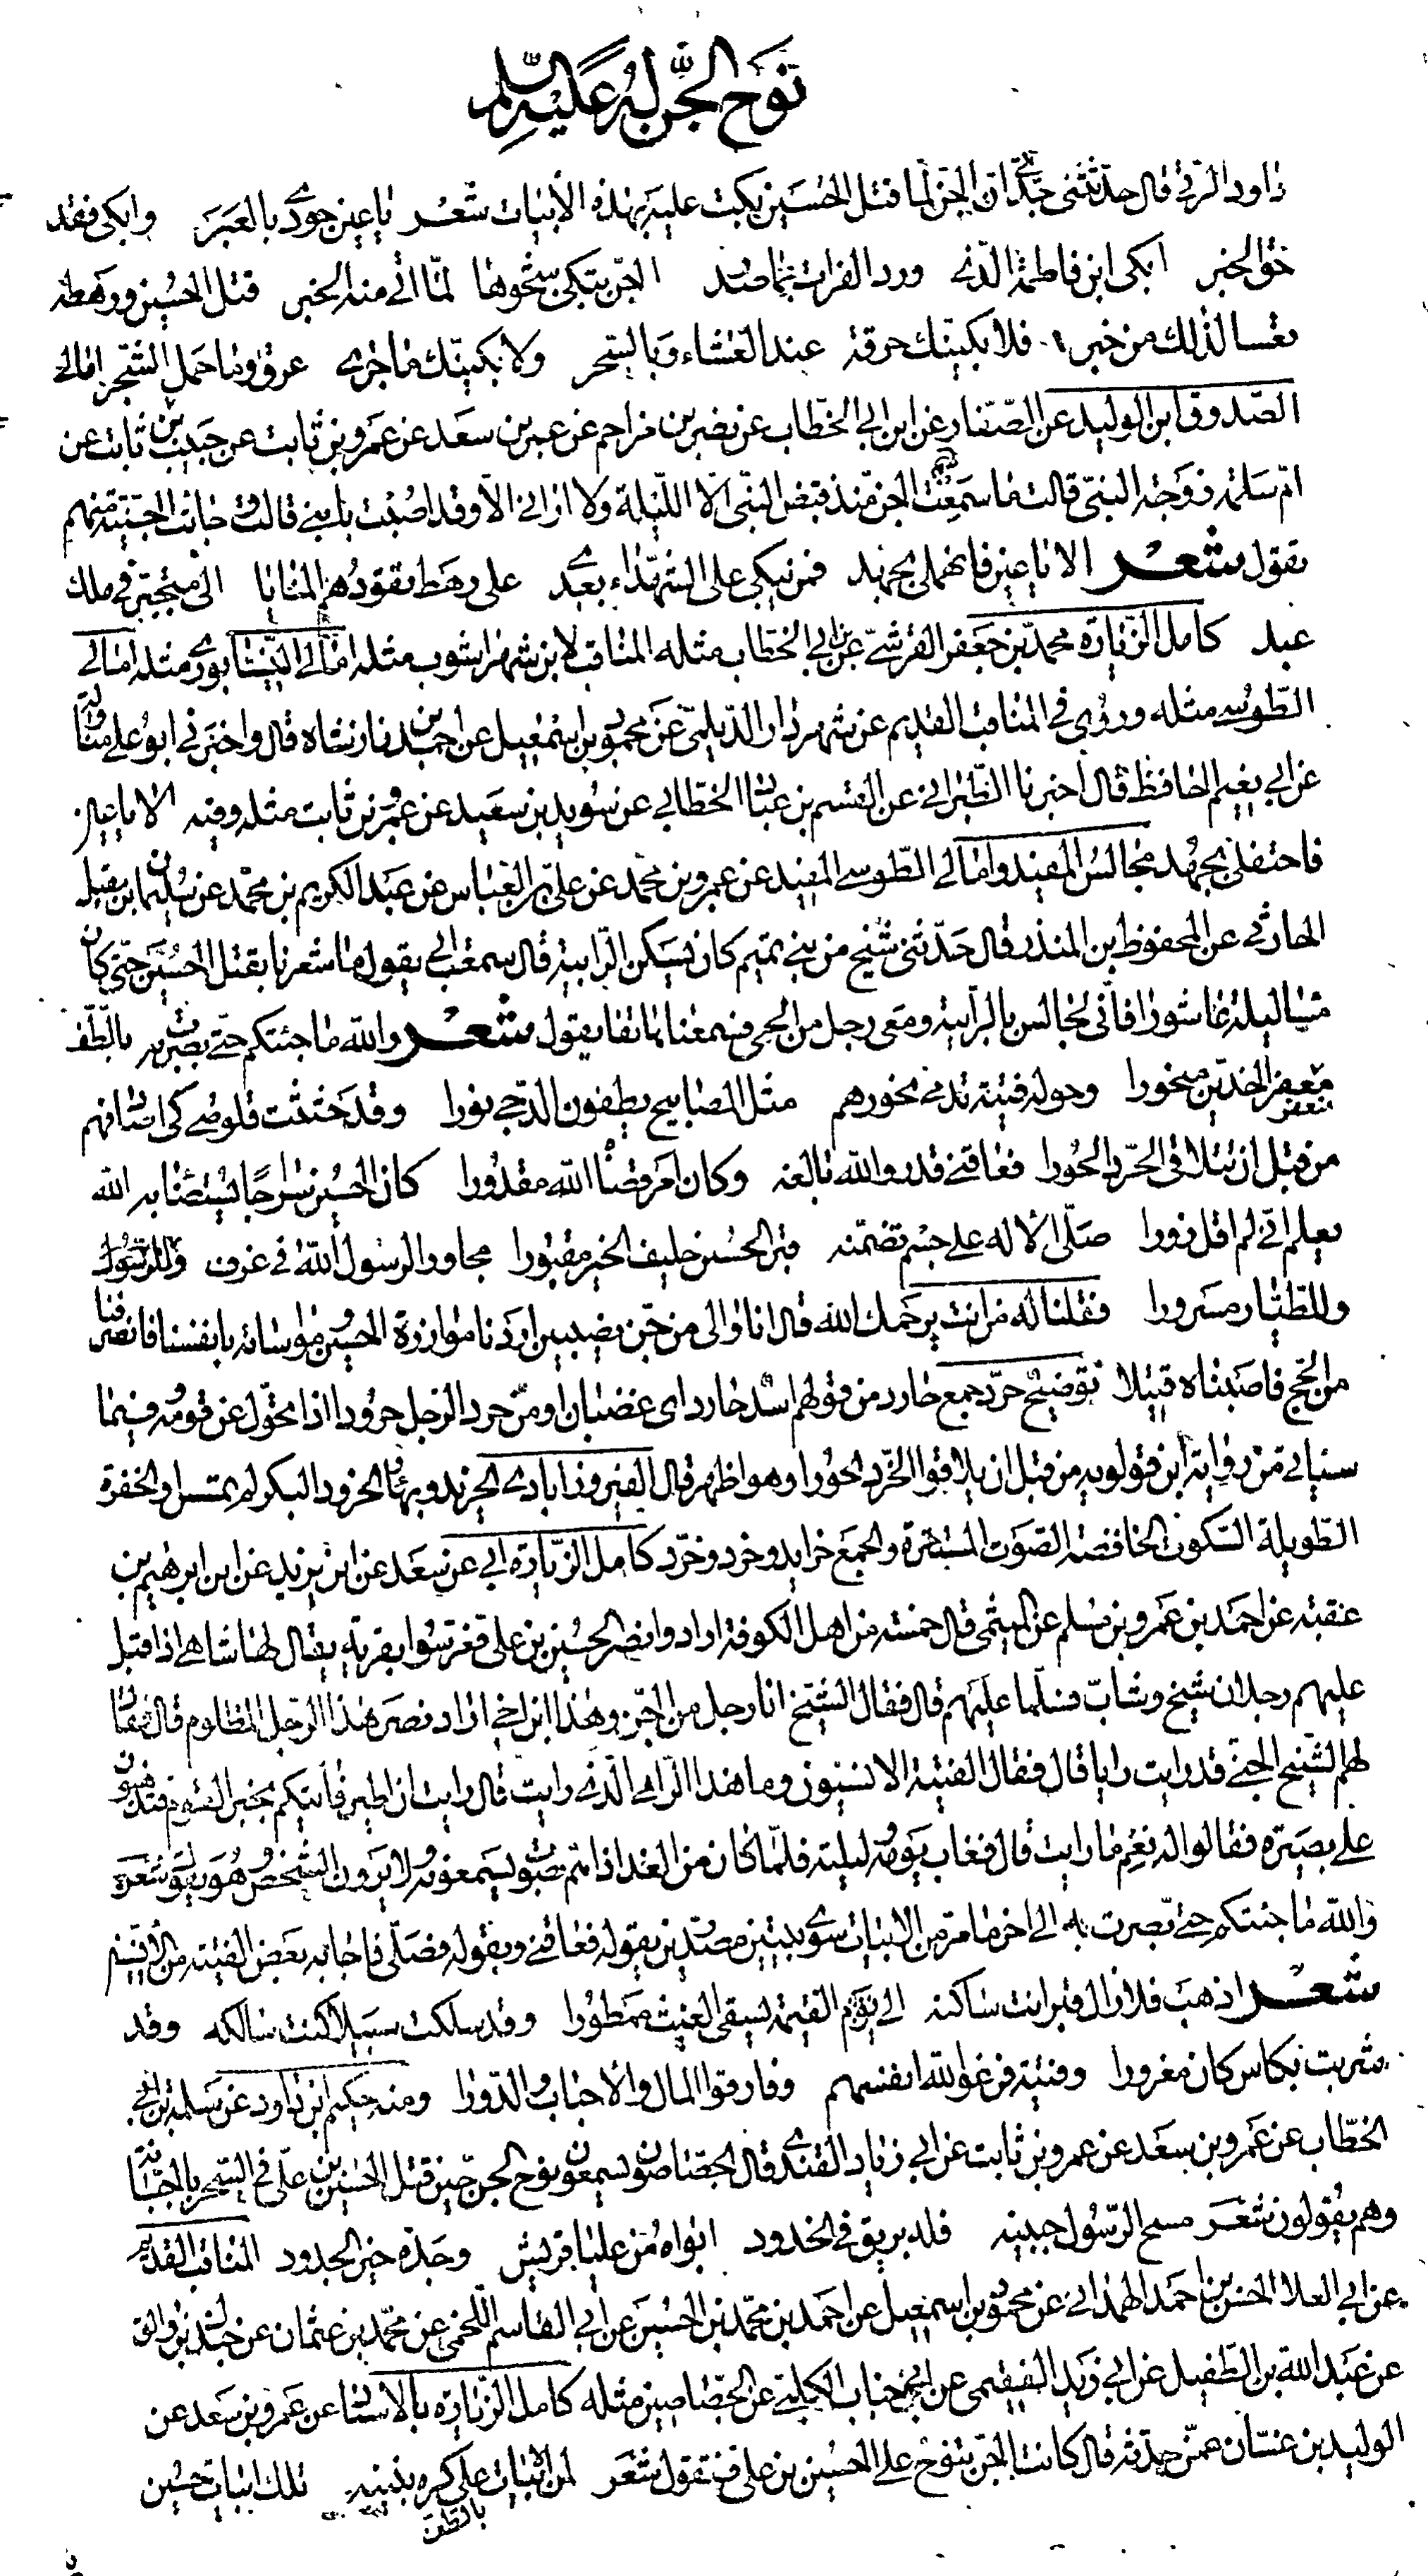 نوح الجن له عليه السلم
داود الرقي قال حدثتني جدتي ان الجن لما قتل الحسين بكت عليه بهذه الأبيات شعر يا عين جودي بالعبر وابكي فقد
حق الخبر ابكي ابن فاطمة الذي ورد الفرات فما صدر الجن تبكي شجوها لما اتى منه الخبر قتل الحسين ورهطه
تعسا لذلك من خبر فلابكينك حرقة عند العشاء وبالسحر ولابكينك ما جرى عرق وما حمل الشجر امالي
الصدوق ابن الوليد عن الصفار عن ابن ابي الخطاب عن نصر بن مزاحم عن عمر بن سعد عن عمرو بن ثابت عن حبيب بن ثابت عن
ام سلمة زوجة النبي قالت ما سمعت الجن منذ قبض النبي الا الليلة ولا اراني الا وقد اصبت بابني قالت وجائت الجنية منهم
تقول شعر الا يا عين فانهملي بجهد فمن يبكي على الشهداء بعدي على رهط تقودهم المنايا الى متجبر في ملك
عبد كامل الزيارة محمد بن جعفر القرشي عن ابن ابي الخطاب مثله المناقب لابن شهراشوب مثله امالي النيسابوري مثله امالي
الطوسي مثله وروي في المناقب القديم عن شهردار الديلمي عن محمود بن اسمعيل عن احمد بن فارنشاه قال واخبرني ابو علي مناولة
عن ابي نعيم الحافظ قال اخبرنا الطبراني عن القسم بن عباد الخطابي عن سويد بن سعيد عن عمرو بن ثابت مثله وفيه الا يا عين
فاحتفلي بجهد مجالس المفيد وامالي الطوسي المفيد عن عمرو بن محمد عن علي بن العباس عن عبد الكريم بن محمد عن سليمان بن مقبل
الحارثي عن المحفوظ ابن المنذر قال حدثني شيخ من بني تميم كان يسكن الرابية قال سمعت ابي يقول ما شعرنا بقتل الحسين حتى كان
مساء ليلة عاشورا فاني لجالس بالرابية ومعي رجل من الحي فسمعنا هاتفا يقول شعر والله ما جئتكم حتى بصرت به بالطف
منعفر الخدين منحورا وحوله فتية تدمى نحورهم مثل المصابيح يطفون الدجى نورا وقد حثثت قلوصي كي اصادفهم
من قبل ان تتلاقى الحرد الحورا فعاقني قدر والله بالغه وكان امر قضاه الله مقدورا كان الحسين سراجا يستضاء به الله
يعلم اني لم اقل زورا صلى الاله على جسم تضمنه قبر الحسين حليف الخير مقبورا مجاورا لرسول الله في غرف وللرسول
وللطيار مسرورا فقلنا له من انت يرحمك الله قال انا والي من جن نصيبين اردنا موازرة الحسين ومواساته بانفسنا فانصرفنا
من الحج فاصبناه قتيلا توضيح حرد جمع حارد من قولهم اسد حارد اى غضبان او من حرد الرجل حرودا اذا تحول عن قومه وفيما
سياتي من رواية ابن قولويه من قبل ان يلاقوا الخرد الحورا وهو اظهر قال الفيروزابادي الخريد وبهاء والخرود البكر لم تمسس او الخفرة
الطويلة السكوت الخافضة الصوت المستترة والجمع خرايد وخرد وخرد كامل الزيارة ابي عن سعد عن ابن يزيد عن ابن ابرهيم بن
عقبة عن احمد بن عمرو بن مسلم عن الميثمي قال خمسة من اهل الكوفة ارادوا نصر الحسين بن علي فعرسوا بقرية يقال لها شاهي اذا قبل
عليهم رجلان شيخ وشاب فسلما عليهم قال فقال الشيخ انا رجل من الجن وهذا ابن اخي اراد نصر هذا الرجل المظلوم قال فقال
لهم الشيخ الجني قد رايت رايا قال فقال الفتية الانسيون وما هذا الراي الذي رايت قال رايت ان اطير فآتيكم بخبر القوم فتذهبون
على بصيرة فقالوا له نعم ما رايت قال فغاب يومه وليلته فلما كان من الغد اذا هم بصوت يسمعونه ولا يرون الشخص وهو يقول شعر
والله ما جئتكم حتى بصرت به الى اخر ما مر من الابيات سوى بيتين مصدرين بقوله فعاقني وبقوله صلى فاجابه بعض الفتية من الانسيين
شعر اذهب فلا زال قبر انت ساكنه الى يوم القيمة يسقى الغيث ممطورا وقد سلكت سبيلا كنت سالكه وقد
شربت بكاس كان مغرورا وفتية فرغوا لله انفسهم وفارقوا المال والاحباب والدورا ومنه حكيم ابن داود عن سلمة عن ابي
الخطاب عن عمرو بن سعد عن عمرو بن ثابت عن ابي زياد القندي قال الجصاصون يسمعون نوح الجن حين قتل الحسين بن علي في السحر بالجبانة
وهم يقولون شعر مسح الرسول جبينه فله بريق في الخدود ابواه من عليا قريش وجده خير الجدود المناقب القديم
عن ابي العلا الحسن بن احمد الهمداني عن محمود بن اسمعيل عن احمد بن محمد بن الحسين عن ابي القاسم اللخمي عن محمد بن عثمان عن جندل بن والق
عن عبد الله بن الطفيل عن ابي زيد الفقيمي عن ابي جناب الكلبي عن الجصاصين مثله كامل الزيارة بالاسناد عن عمرو بن سعد عن
الوليد بن غسان عمن حدثه قال كانت الجن تنوح على الحسين بن علي فتقول شعر لمن الابيات على كره بنينه تلك ابيات حسين
بالطف